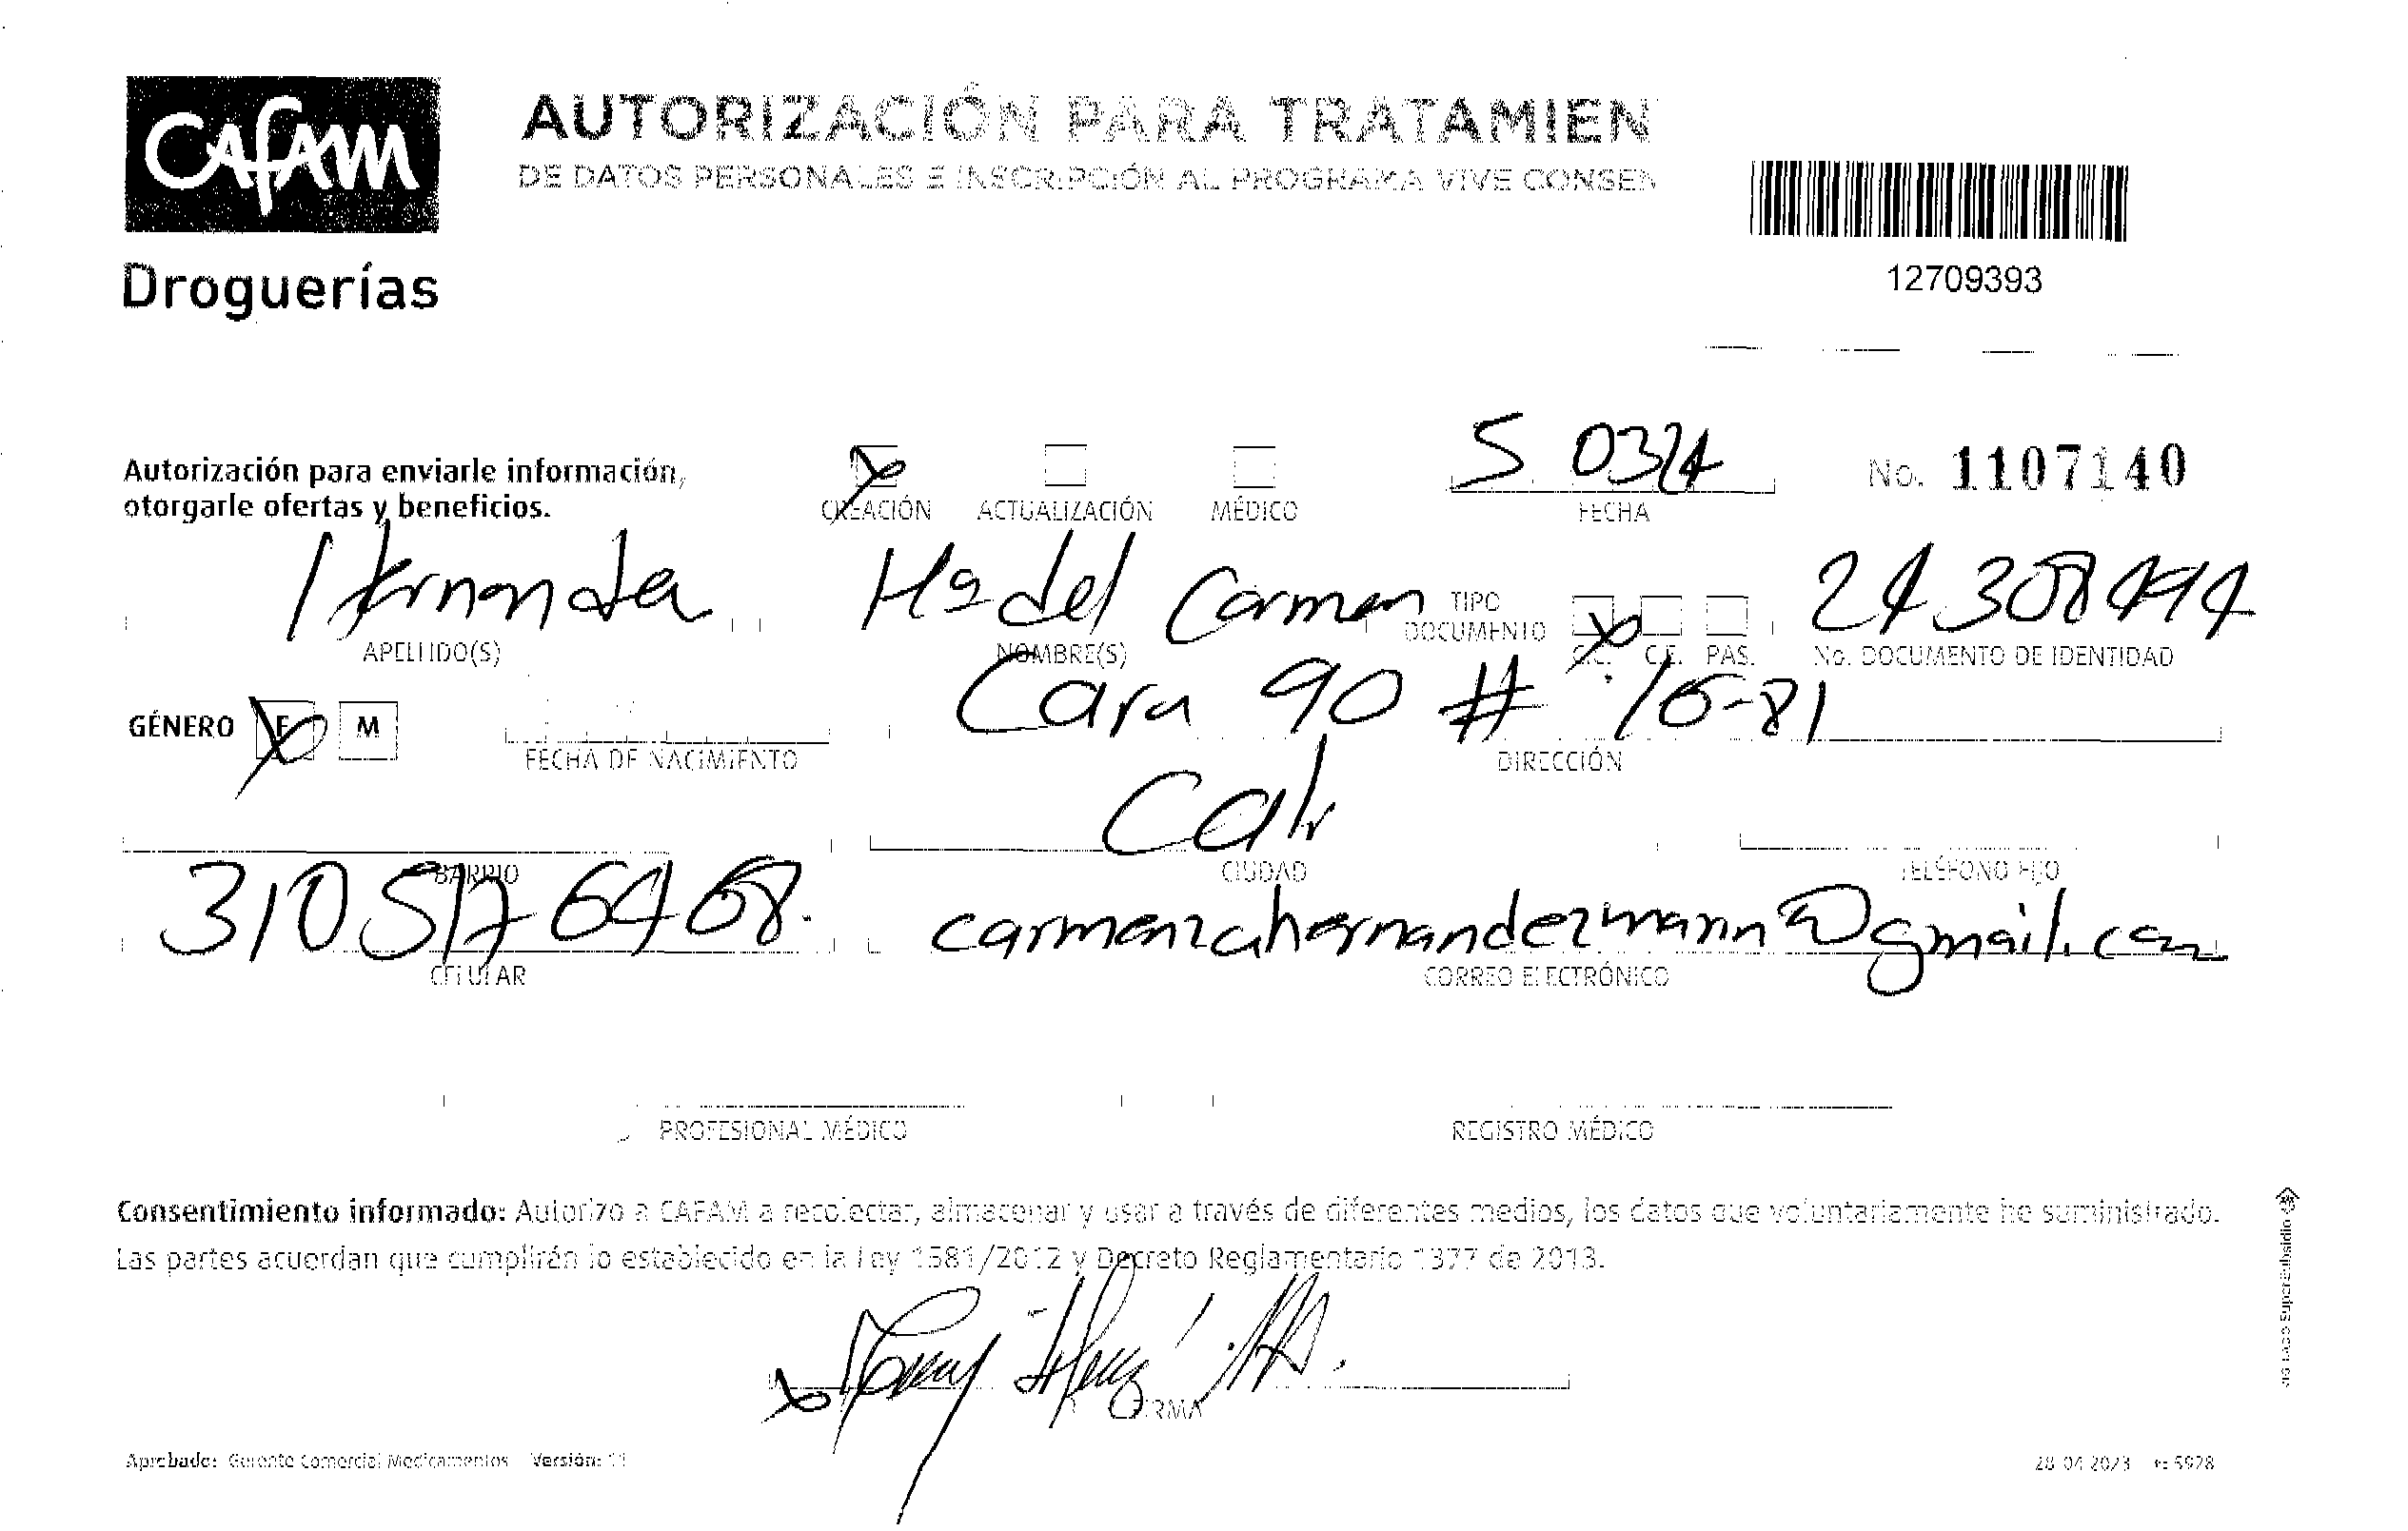 CAFAM
Droguerías
AUTORIZACIÓN PARA TRATAMIEN
DE DATOS PERSONALES E INSCRIPCIÓN AL PROGRAMA VIVE CONSEN
12709393
Autorización para enviarle información,
otorgarle ofertas y beneficios.
CREACIÓN ACTUALIZACIÓN MÉDICO
5 0324
FECHA
No. 1107140
Hernandez
APELLIDO(S)
Ma del Carmen
NOMBRE(S)
TIPO
DOCUMENTO
C.C. C.E. PAS.
24308494
No. DOCUMENTO DE IDENTIDAD
GÉNERO F M
FECHA DE NACIMIENTO
Cara 90 # 16-81
DIRECCIÓN
BARRIO
Cali
CIUDAD
TELÉFONO FIJO
CELULAR
carmenzahernandezmann@gmail.com
CORREO ELECTRÓNICO
PROFESIONAL MÉDICO
REGISTRO MÉDICO
Consentimiento informado: Autorizo a CAFAM a recolectar, almacenar y usar a través de diferentes medios, los datos que voluntariamente he suministrado.
Las partes acuerdan que cumplirán lo establecido en la Ley 1581/2012 y Decreto Reglamentario 1377 de 2013.
FIRMA
Aprobado: Gerente Comercial Medicamentos Versión: 11
28 04 2023